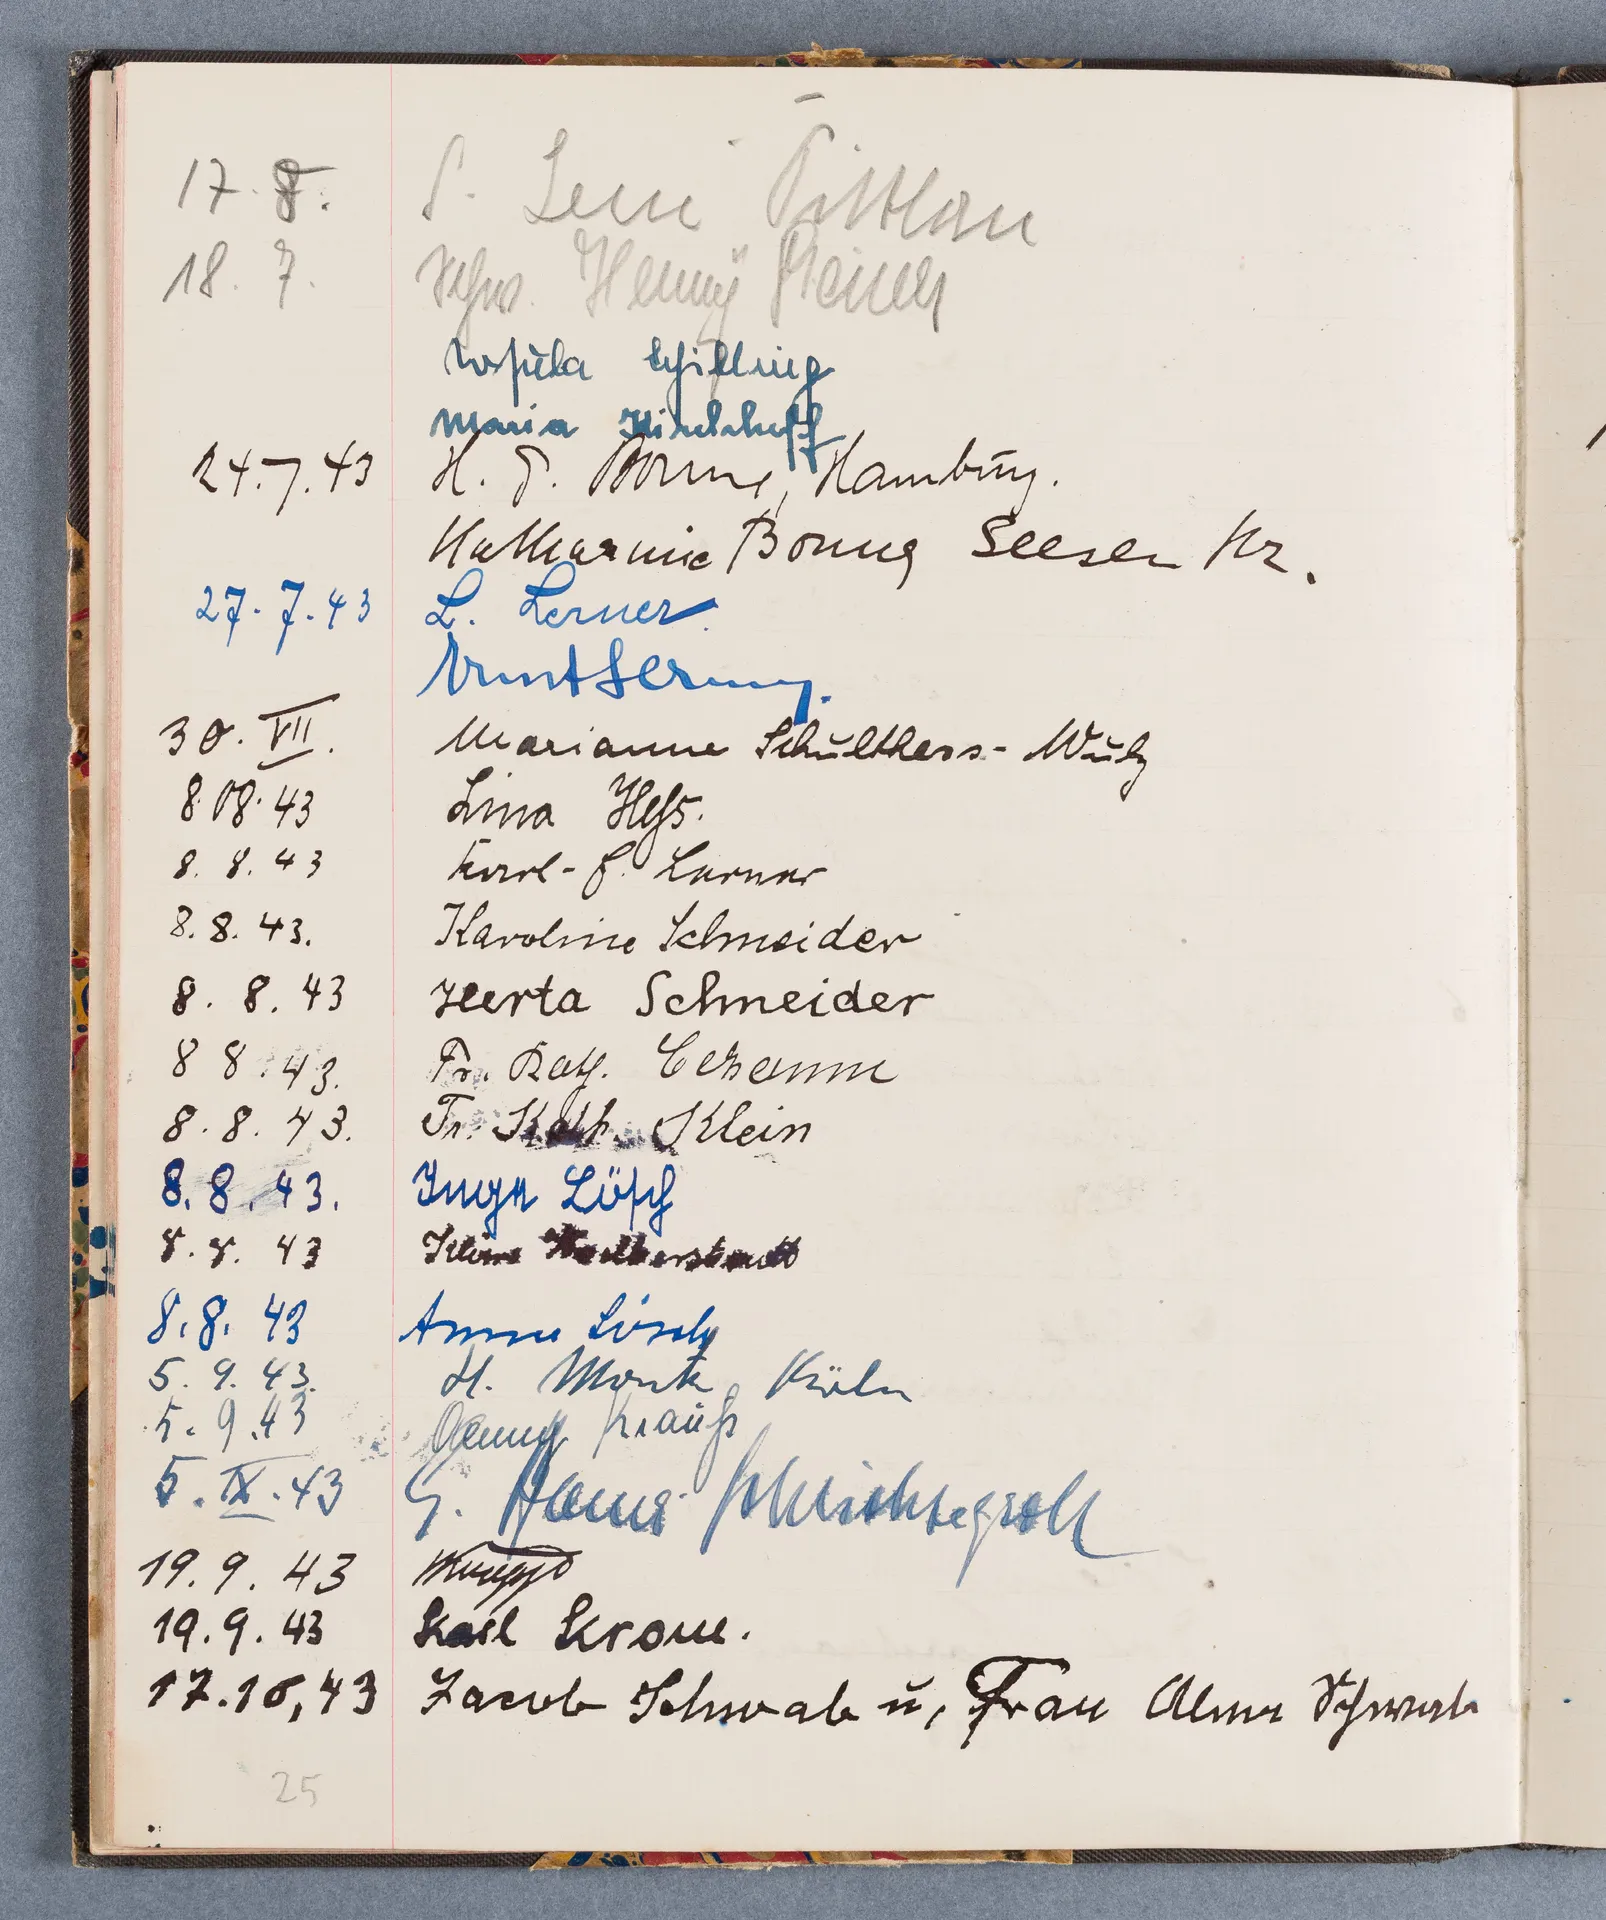 17. 8. S. Leni Pittlau
18. 7. Schw. Henny
Ursula Schilling
Maria Kirchhoff
24.7.43 H. F. Bonne, Hamburg.
Katharina Bonne Seesen Hz.
27.7.43 L. Lerner.
30. VII. Marianne Schulthess-Wulz
8.08.43 Lina Heß.
8. 8. 43 Karl-F. Lerner
8.8.43. Karoline Schneider
8. 8. 43 Herta Schneider
8 8. 43. Fr. Kath. Cezanne
8. 8. 43. Fr. Kath. Klein
8. 8. 43. Inge Lösch
8. 8. 43 Halberstadt
8. 8. 43 Anna Lösch
5. 9. 43. H. Monk, Köln
5. 9.43 Jenny Krauß
5. IX. 43 G. Schlichtegroll
19. 9. 43
19. 9. 43 Karl Krone.
17.10,43 Jacob Schwab u, Frau Alma Schwab
25